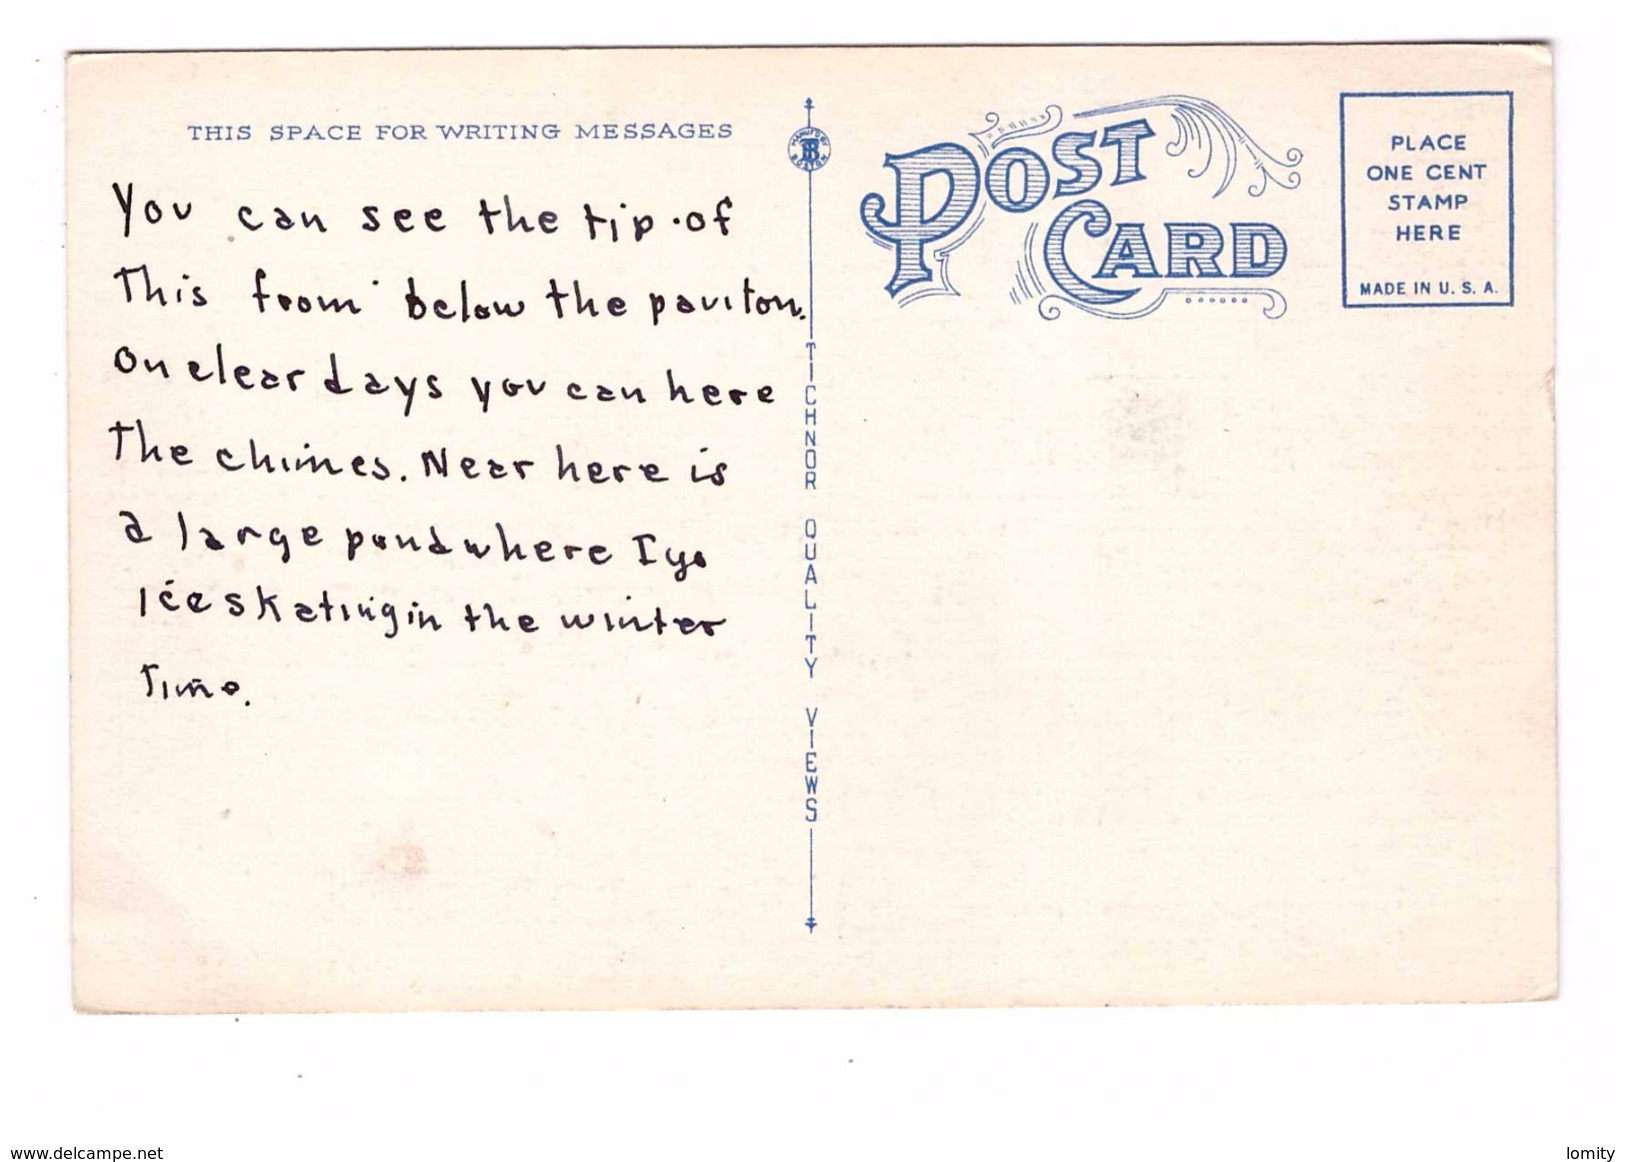 THIS SPACE FOR WRITING MESSAGES
You can see the tip of
This from below the paviton.
On clear days you can here
The chimes. Near here is
a large pond where I go
Ice skating in the winter
Time.
MANUF'D BY
TB
BOSTON
TICHNOR QUALITY VIEWS
POST
CARD
PLACE
ONE CENT
STAMP
HERE
MADE IN U. S. A.
www.delcampe.net
lomity